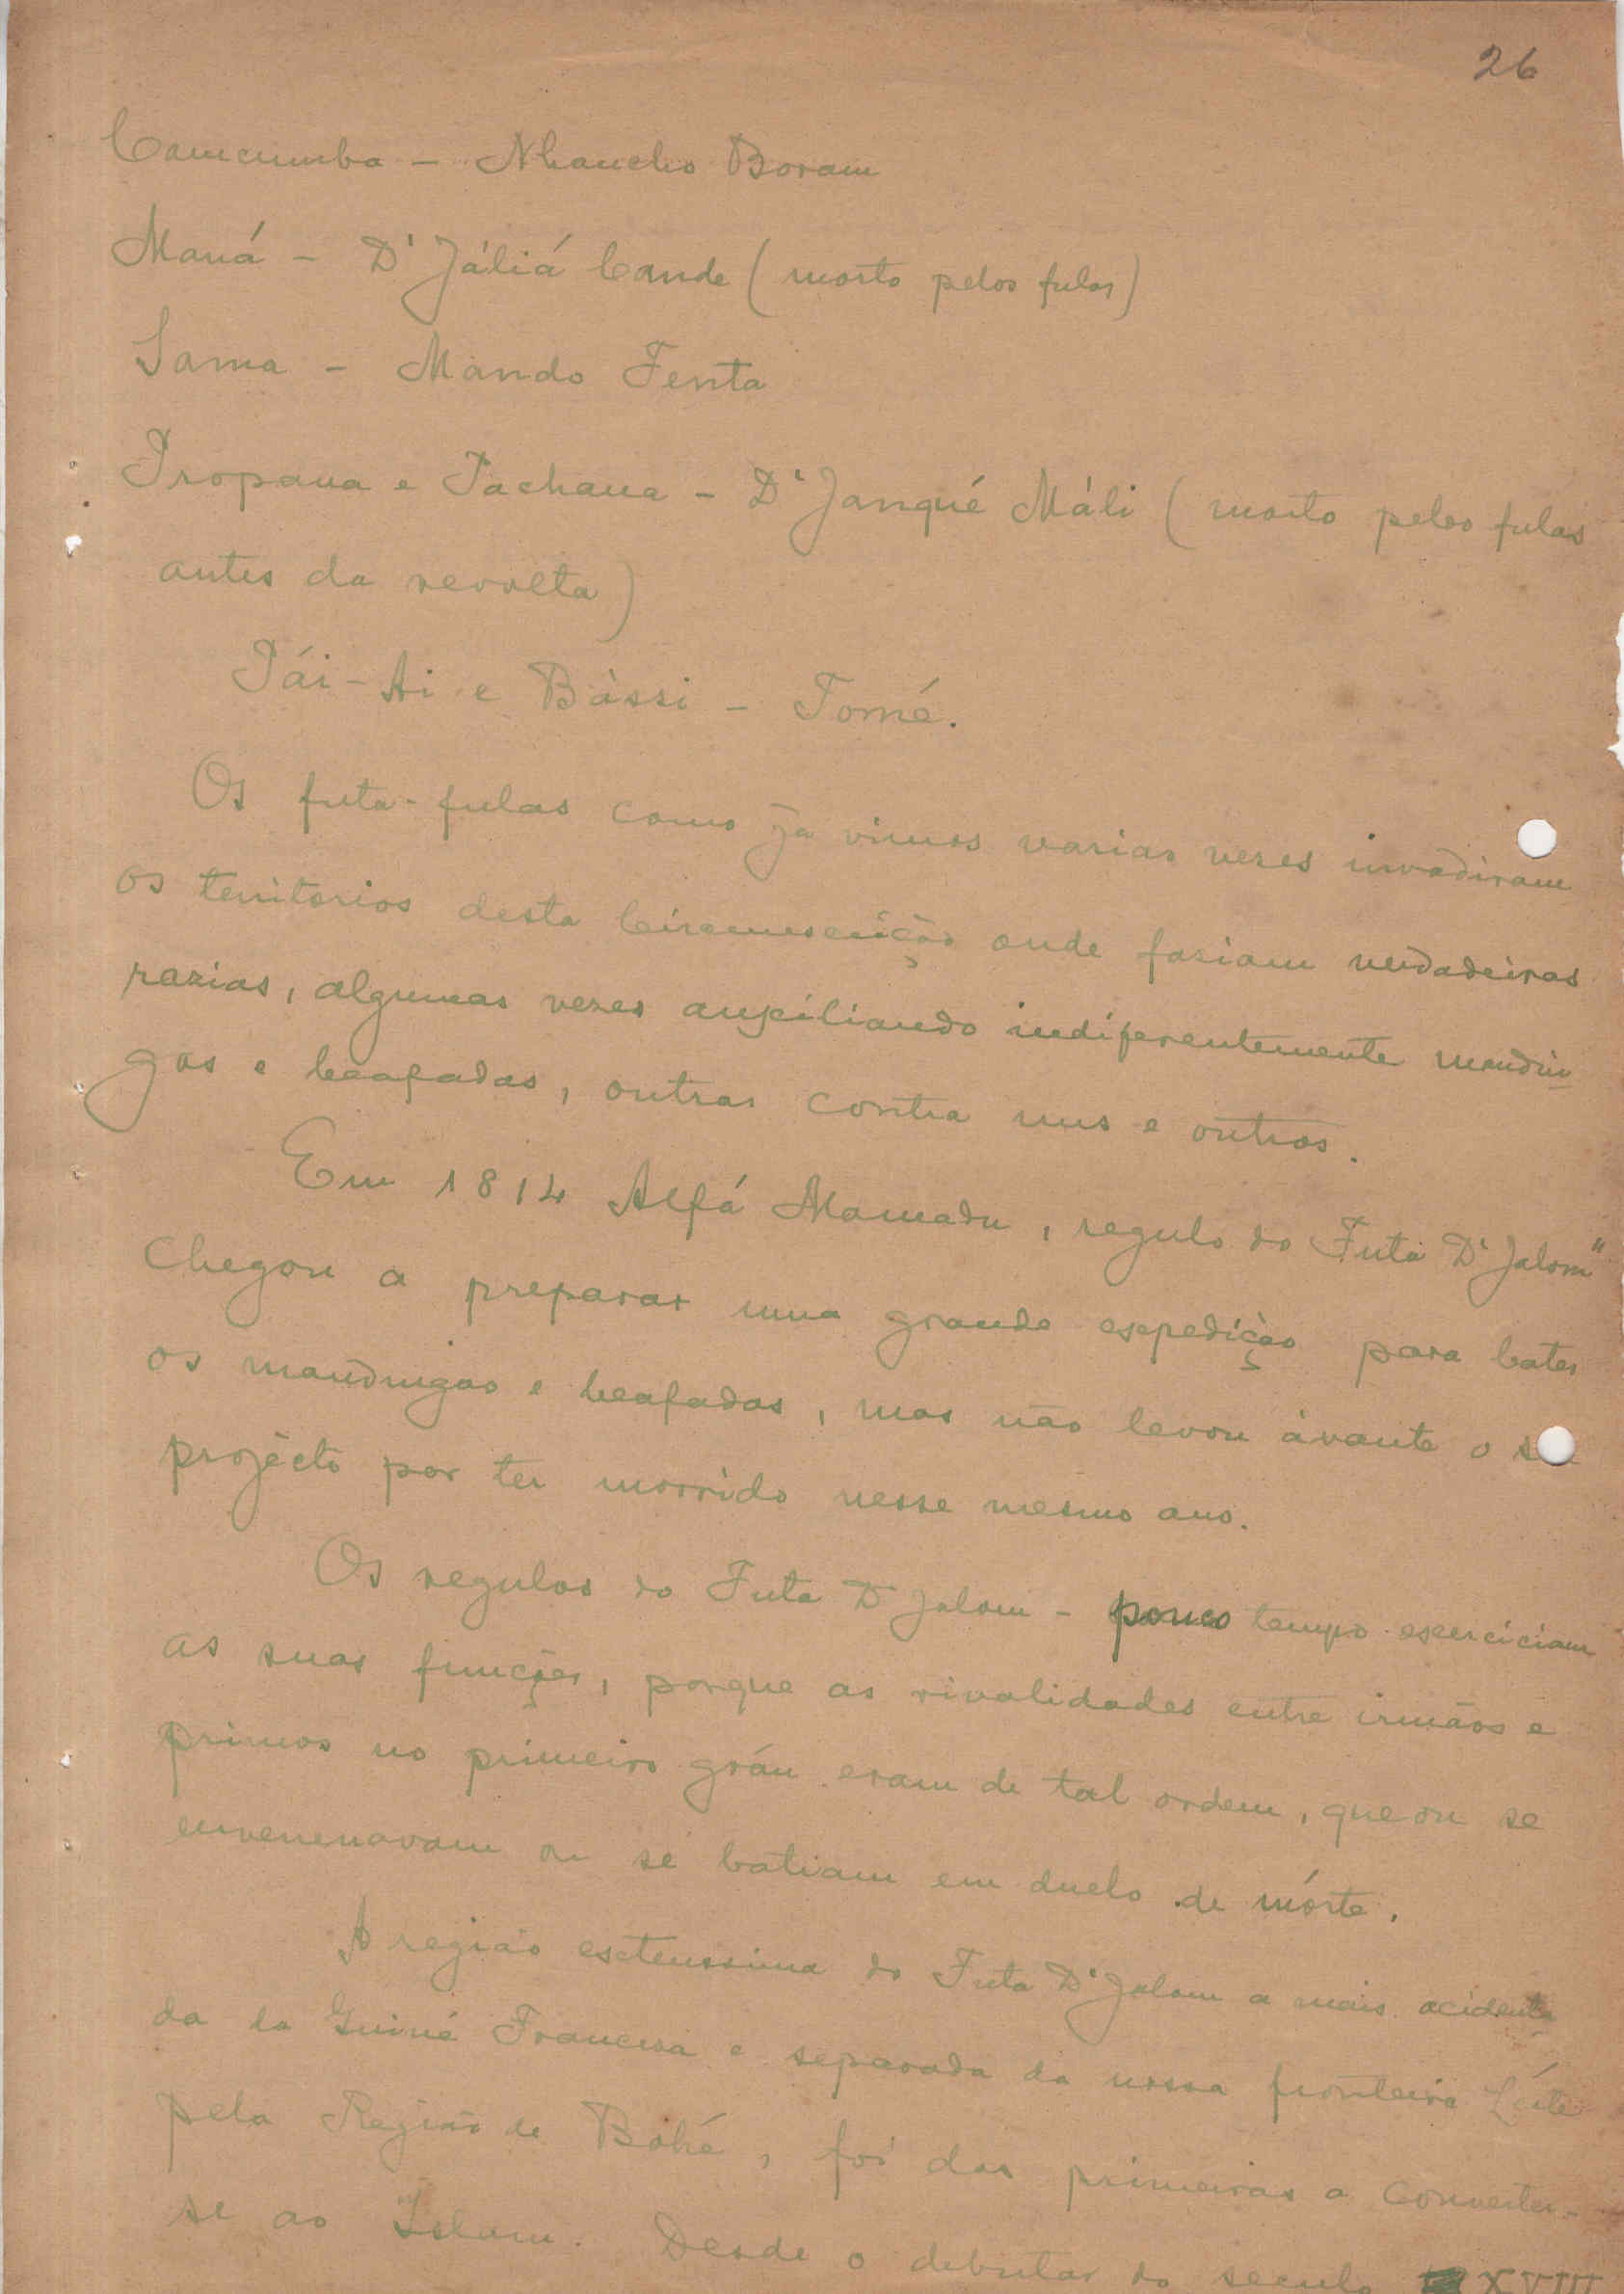 26
Camcumba - Nhancho Boram
Maná - D'Jáliá Cande (morto pelos fulas)
Sama - Mando Fenta
Propana e Pachana - D'Janqué Máli (morto pelos fulas
antes da revolta)
Pái-Ai e Bàssi - Tomé.
Os futa-fulas como já vimos varias veses invadiram
os territorios desta Circumscrição onde fasiam verdadeiras
razias, algumas vezes auxiliando indiferentemente mandin
gas e beafadas, outras contra uns e outros.
Em 1814 Alfá Mamadu, regulo do Futa D'Jalom"
chegou a preparar uma grande expedição para bater
os mandingas e beafadas, mas não levou ávante o
projécto por ter morrido nesse mesmo ano.
Os regulos do Futa D'Jalom - pouco tempo exerciciam
as suas funções, porque as rivalidades entre irmãos e
primos no primeiro gráu eram de tal ordem, que ou se
envenenavam ou se batiam em duelo de mórte.
A região extenssima do Futa D'Jalom a mais acidenta
da da Guiné Francesa e separada da nossa fronteira Léste
pela Região de Bohé, foi das primeiras a converter-
se ao Islam. Desde o debutar do seculo XVIII